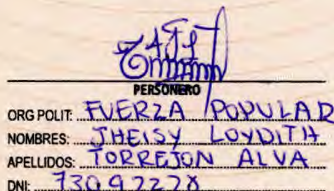 PERSONERO
ORG POLIT: FUERZA POPULAR
NOMBRES: JHEISY LOYDITH
APELLIDOS: TORREJON ALVA
DNI: 73092228